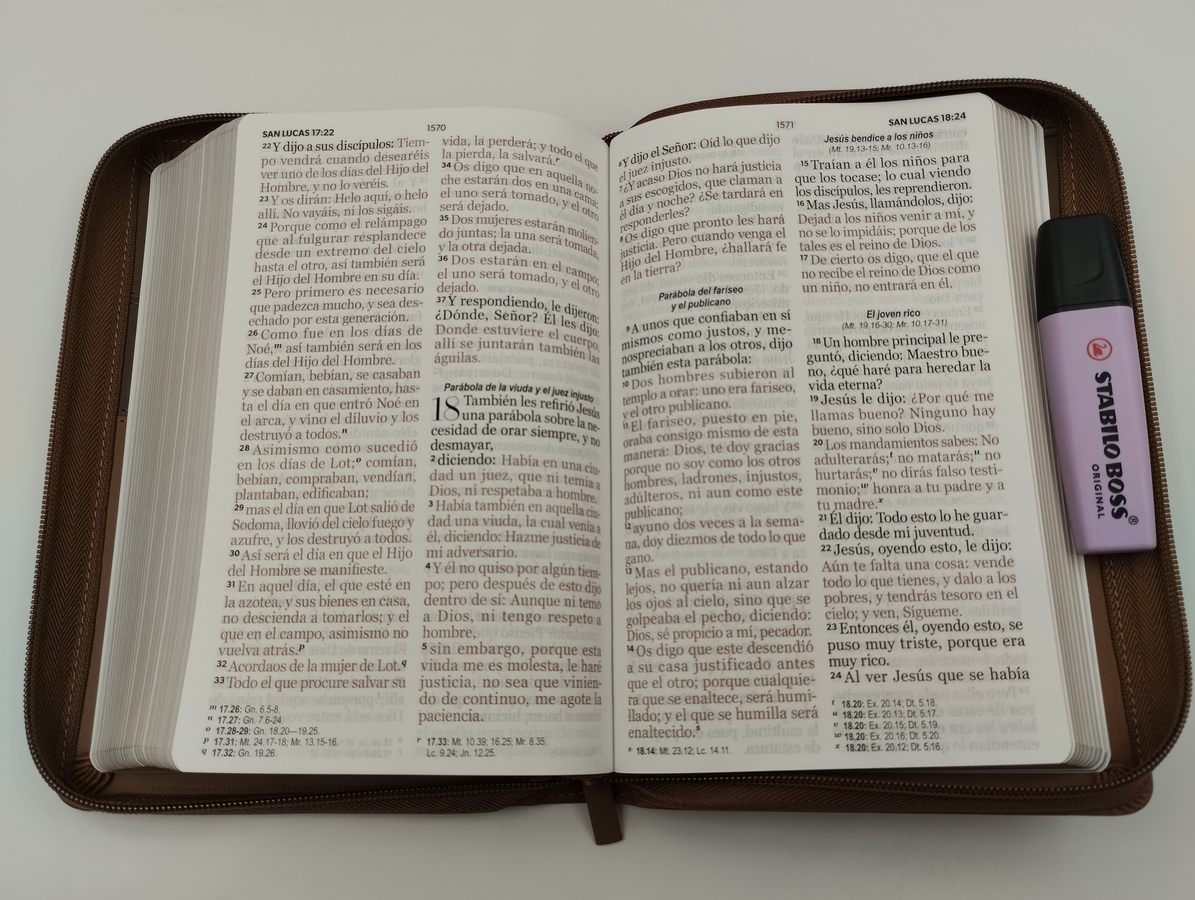 SAN LUCAS 17:22
1570
22 Y dijo a sus discípulos: Tiem-
po vendrá cuando desearéis
ver uno de los días del Hijo del
Hombre, y no lo veréis.
23 Y os dirán: Helo aquí, o helo
allí. No vayáis, ni los sigáis.
24 Porque como el relámpago
que al fulgurar resplandece
desde un extremo del cielo
hasta el otro, así también será
el Hijo del Hombre en su día.
25 Pero primero es necesario
que padezca mucho, y sea des-
echado por esta generación.
26 Como fue en los días de
Noé,m así también será en los
días del Hijo del Hombre.
27 Comían, bebían, se casaban
y se daban en casamiento, has-
ta el día en que entró Noé en
el arca, y vino el diluvio y los
destruyó a todos.n
28 Asimismo como sucedió
en los días de Lot;o comían,
bebían, compraban, vendían,
plantaban, edificaban;
29 mas el día en que Lot salió de
Sodoma, llovió del cielo fuego y
azufre, y los destruyó a todos.
30 Así será el día en que el Hijo
del Hombre se manifieste.
31 En aquel día, el que esté en
la azotea, y sus bienes en casa,
no descienda a tomarlos; y el
que en el campo, asimismo no
vuelva atrás.p
32 Acordaos de la mujer de Lot.q
33 Todo el que procure salvar su
m 17.26: Gn. 6.5-8.
n 17.27: Gn. 7.6-24.
o 17.28-29: Gn. 18.20—19.25.
p 17.31: Mt. 24.17-18; Mr. 13.15-16.
q 17.32: Gn. 19.26.
vida, la perderá; y todo el que
la pierda, la salvará.r
34 Os digo que en aquella no-
che estarán dos en una cama;
el uno será tomado, y el otro
será dejado.
35 Dos mujeres estarán molien-
do juntas; la una será tomada,
y la otra dejada.
36 Dos estarán en el campo;
el uno será tomado, y el otro
dejado.
37 Y respondiendo, le dijeron:
¿Dónde, Señor? Él les dijo:
Donde estuviere el cuerpo,
allí se juntarán también las
águilas.
Parábola de la viuda y el juez injusto
18 También les refirió Jesús
una parábola sobre la ne-
cesidad de orar siempre, y no
desmayar,
2 diciendo: Había en una ciu-
dad un juez, que ni temía a
Dios, ni respetaba a hombre.
3 Había también en aquella ciu-
dad una viuda, la cual venía a
él, diciendo: Hazme justicia de
mi adversario.
4 Y él no quiso por algún tiem-
po; pero después de esto dijo
dentro de sí: Aunque ni temo
a Dios, ni tengo respeto a
hombre,
5 sin embargo, porque esta
viuda me es molesta, le haré
justicia, no sea que vinien-
do de continuo, me agote la
paciencia.
r 17.33: Mt. 10.39; 16.25; Mr. 8.35;
Lc. 9.24; Jn. 12.25.
1571
SAN LUCAS 18:24
6 Y dijo el Señor: Oíd lo que dijo
el juez injusto.
7 ¿Y acaso Dios no hará justicia
a sus escogidos, que claman a
él día y noche? ¿Se tardará en
responderles?
8 Os digo que pronto les hará
justicia. Pero cuando venga el
Hijo del Hombre, ¿hallará fe
en la tierra?
Parábola del fariseo
y el publicano
9 A unos que confiaban en sí
mismos como justos, y me-
nospreciaban a los otros, dijo
también esta parábola:
10 Dos hombres subieron al
templo a orar: uno era fariseo,
y el otro publicano.
11 El fariseo, puesto en pie,
oraba consigo mismo de esta
manera: Dios, te doy gracias
porque no soy como los otros
hombres, ladrones, injustos,
adúlteros, ni aun como este
publicano;
12 ayuno dos veces a la sema-
na, doy diezmos de todo lo que
gano.
13 Mas el publicano, estando
lejos, no quería ni aun alzar
los ojos al cielo, sino que se
golpeaba el pecho, diciendo:
Dios, sé propicio a mí, pecador.
14 Os digo que este descendió
a su casa justificado antes
que el otro; porque cualquie-
ra que se enaltece, será humi-
llado; y el que se humilla será
enaltecido.s
s 18.14: Mt. 23.12; Lc. 14.11.
Jesús bendice a los niños
(Mt. 19.13-15; Mr. 10.13-16)
15 Traían a él los niños para
que los tocase; lo cual viendo
los discípulos, les reprendieron.
16 Mas Jesús, llamándolos, dijo:
Dejad a los niños venir a mí, y
no se lo impidáis; porque de los
tales es el reino de Dios.
17 De cierto os digo, que el que
no recibe el reino de Dios como
un niño, no entrará en él.
El joven rico
(Mt. 19.16-30; Mr. 10.17-31)
18 Un hombre principal le pre-
guntó, diciendo: Maestro bue-
no, ¿qué haré para heredar la
vida eterna?
19 Jesús le dijo: ¿Por qué me
llamas bueno? Ninguno hay
bueno, sino solo Dios.
20 Los mandamientos sabes: No
adulterarás;t no matarás;u no
hurtarás;v no dirás falso testi-
monio;w honra a tu padre y a
tu madre.x
21 Él dijo: Todo esto lo he guar-
dado desde mi juventud.
22 Jesús, oyendo esto, le dijo:
Aún te falta una cosa: vende
todo lo que tienes, y dalo a los
pobres, y tendrás tesoro en el
cielo; y ven, Sígueme.
23 Entonces él, oyendo esto, se
puso muy triste, porque era
muy rico.
24 Al ver Jesús que se había
t 18.20: Ex. 20.14; Dt. 5.18.
u 18.20: Ex. 20.13; Dt. 5.17.
v 18.20: Ex. 20.15; Dt. 5.19.
w 18.20: Ex. 20.16; Dt. 5.20.
x 18.20: Ex. 20.12; Dt. 5.16.
STABILO BOSS®
ORIGINAL